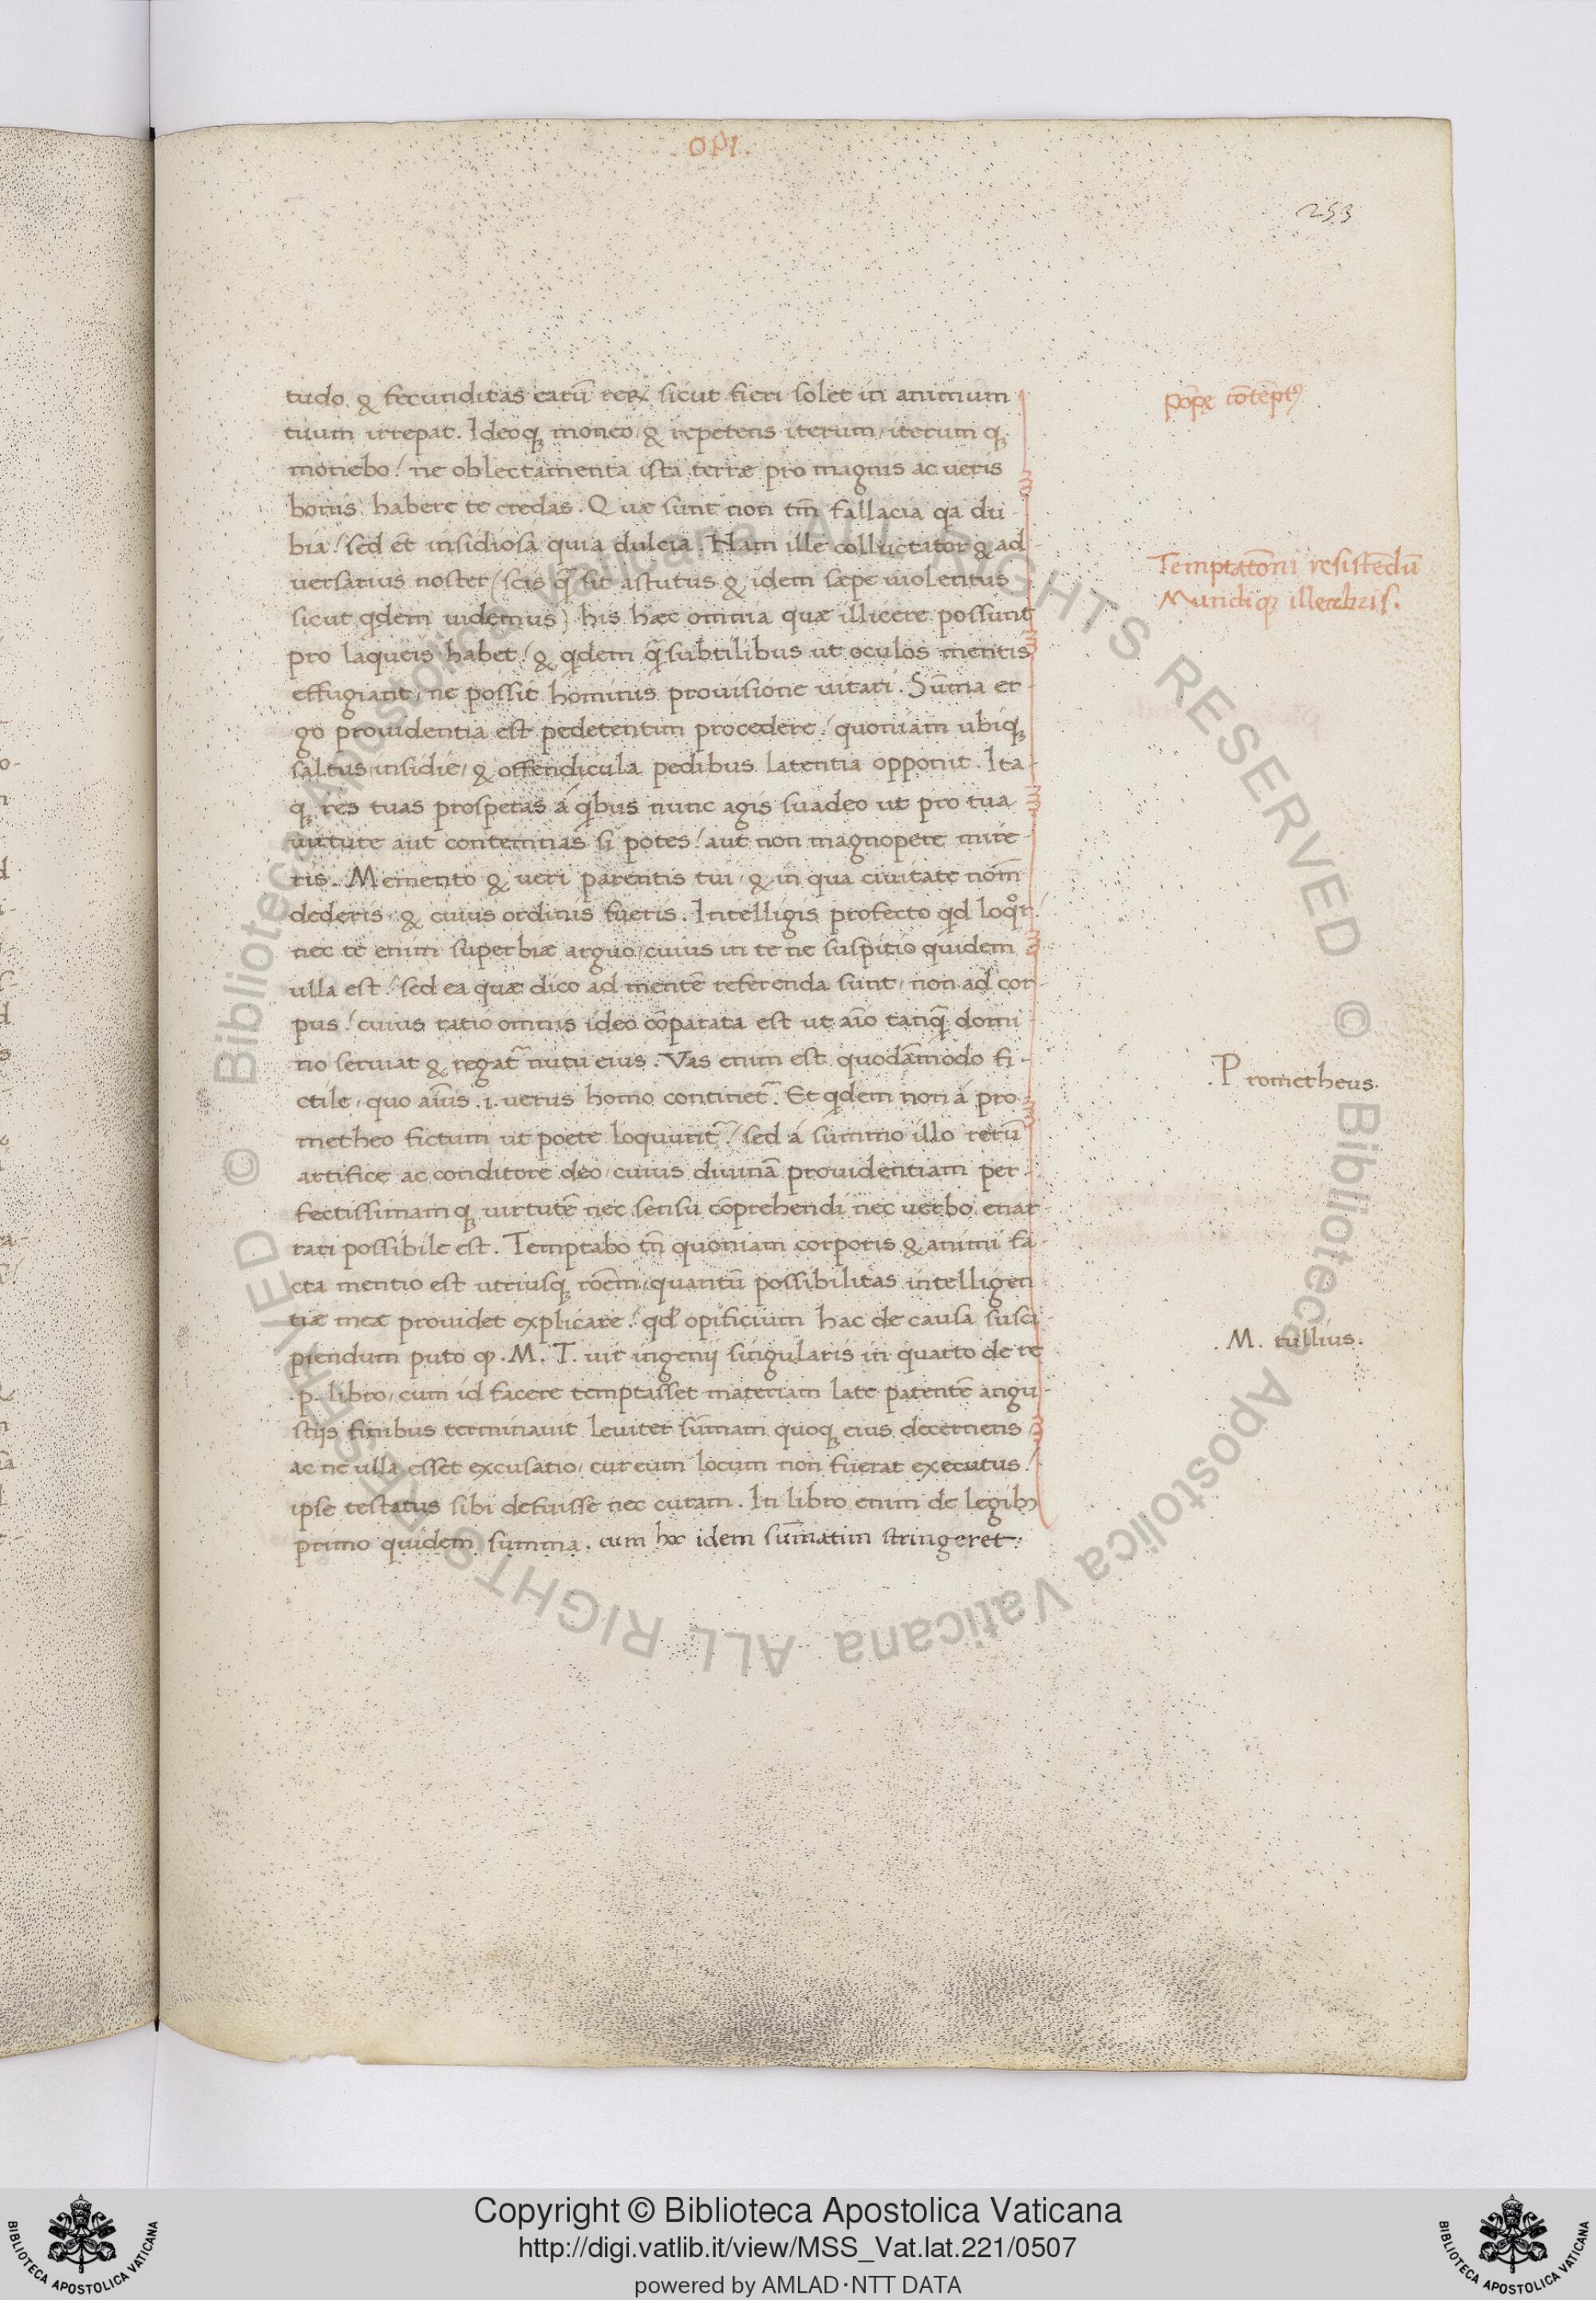 .OPI.
253
tudo & fecunditas earū reꝝ sicut fieri solet in animum
tuum irrepat. Ideoq; moneo & repetens iterum, iterum q;
monebo / ne oblectamenta ista terræ pro magnis ac veris
bonis habere te credas. Quæ sunt non tm̄ fallacia qa du-
bia / sed et̄ insidiosa quia dulcia. Nam ille colluctator & ad
versarius noster (scis q̄ sit astutus & idem sæpe violentus
sicut qdem videmus) his hæc omnia quæ illicere possunt
pro laqueis habet / & qdem q̄ subtilibus ut oculos mentis
effugiant, ne possit hominis provisione vitari. Sūma er-
go providentia est pedetentim procedere / quoniam ubiq;
saltus insidie, & offendicula pedibus latentia opponit. Ita-
q; res tuas prosperas á qbus nunc agis suadeo ut pro tua
virtute aut contemnas si potes / aut non magnopere mire-
ris. Memento & veri parentis tui, & in qua civitate nōm
dederis, & cuius ordinis fueris. Intelligis profecto qd loqr /
nec te enim superbiæ arguo, cuius in te ne suspitio quidem
ulla est / sed ea quæ dico ad mentē referenda sunt, non ad cor-
pus / cuius ratio omnis ideo cōparata est ut aīo tanq̄ domi-
no serviat & regat᷑ nutu eius. Vas enim est quodāmodo fi-
ctile, quo aīus .i. verus homo continet᷑. Et qdem non á pro-
metheo fictum ut poete loquunt᷑ / sed á summo illo rerū
artifice ac conditore deo, cuius divinā providentiam per-
fectissimam q; virtutē nec sensu cōprehendi nec verbo enar-
rari possibile est. Temptabo tn̄ quoniam corporis & animi fa-
cta mentio est utriusq; rōem, quantū possibilitas intelligen
tiæ meæ providet explicare / qd opificium hac de causa susci-
piendum puto ꝙ .M. T. vir ingenij singularis in quarto de re
.p. libro, cum id facere temptasset materiam late patentē angu-
stijs finibus terminavit leviter sūmam quoq; eius decernens
ac ne ulla esset excusatio, cur eum locum non fuerat executus /
ipse testatus sibi defuisse nec curam. In libro enim de legibꝫ
primo quidem summa. cum hoc idem sūmatim stringeret:
Temptatōni resistēdū
Mundiq; illecebris.
.Prometheus.
.M. tullius.
Copyright © Biblioteca Apostolica Vaticana
http://digi.vatlib.it/view/MSS_Vat.lat.221/0507
powered by AMLAD·NTT DATA
BIBLIOTECA APOSTOLICA VATICANA
BIBLIOTECA APOSTOLICA VATICANA
© Biblioteca Apostolica Vaticana ALL RIGHTS RESERVED © Biblioteca Apostolica Vaticana ALL RIGHTS RESERVED